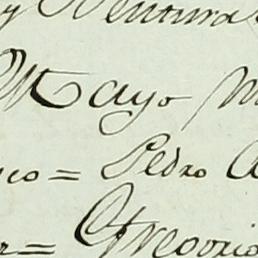 y Ventura
Mayo
co = Pedro
= Gregorio